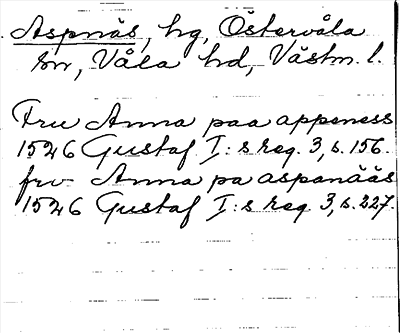 Aspnäs, hg, Östervåla
sn, Våla hd, Västm. l.
Fru Anna paa appeness
1526 Gustaf I:s reg. 3, s. 156.
frv Anna pa aspanääs
1526 Gustaf I:s reg 3, s. 227.